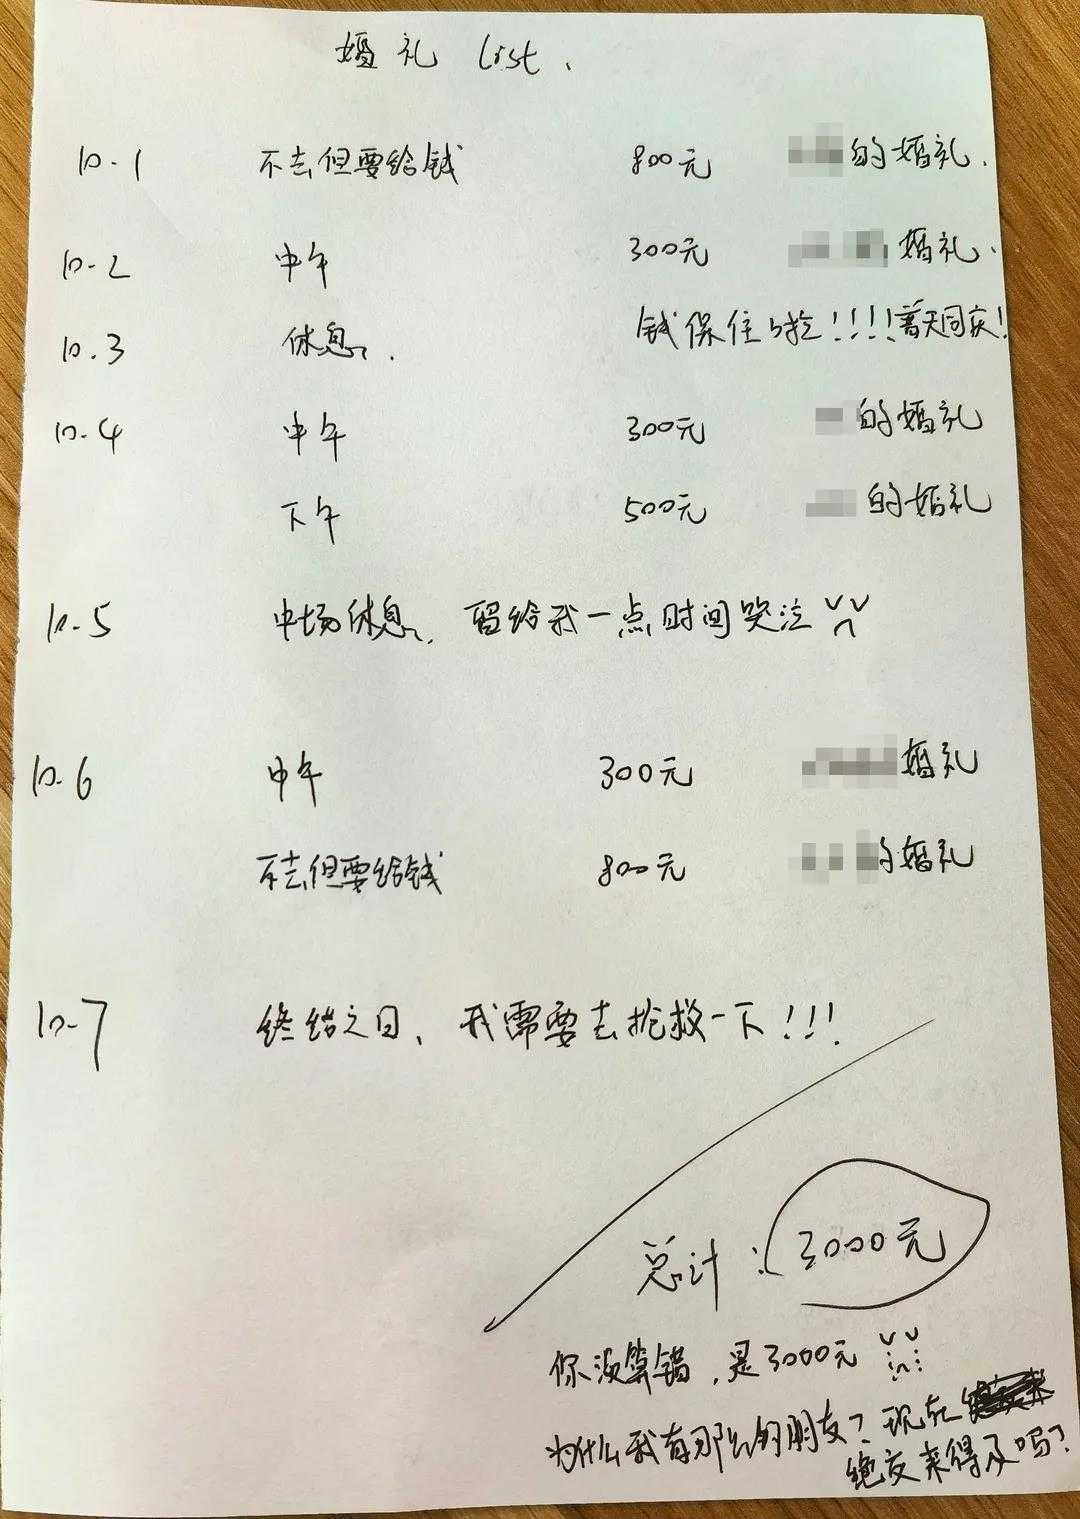 婚礼 List.
10.1 不去但要给钱 800元 的婚礼.
10.2 中午 300元 婚礼.
10.3 休息. 钱保住啦!!!!普天同庆!
10.4 中午 300元 的婚礼
下午 500元 的婚礼
10.5 中场休息, 留给我一点时间哭泣
10.6 中午 300元 婚礼
不去但要给钱 800元 的婚礼
10.7 终结之日, 我需要去抢救一下!!!
总计: 3000元
你没算错,是3000元
为什么我有那么多的朋友?现在
绝交来得及吗?